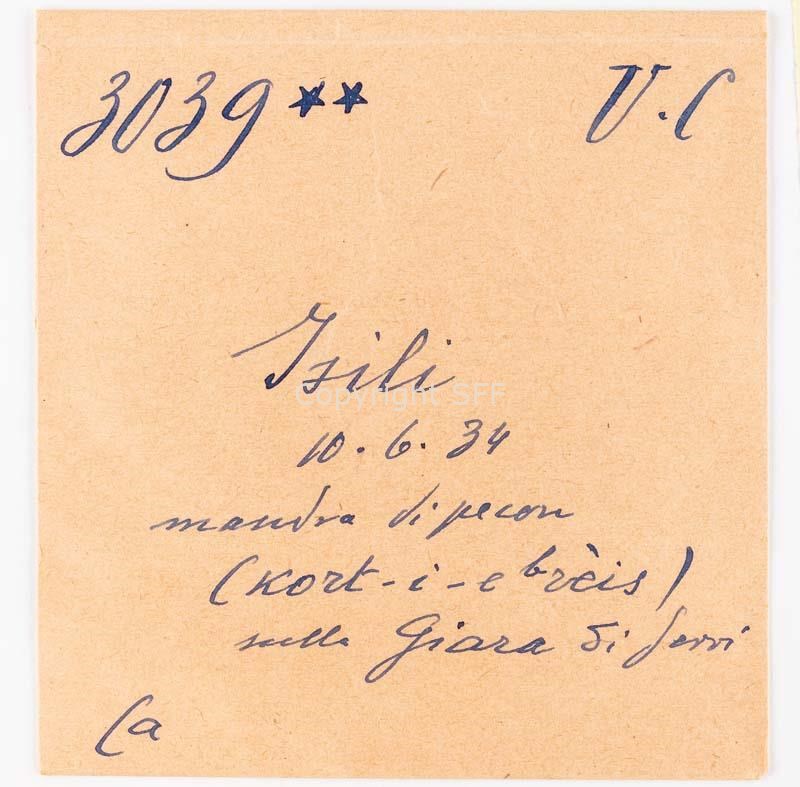 3039 ** V. C
Isili
Copyright SFF
10. 6. 34
mandra di pecore
(kort-i-e brèis)
sulla Giara di Serri
Ca